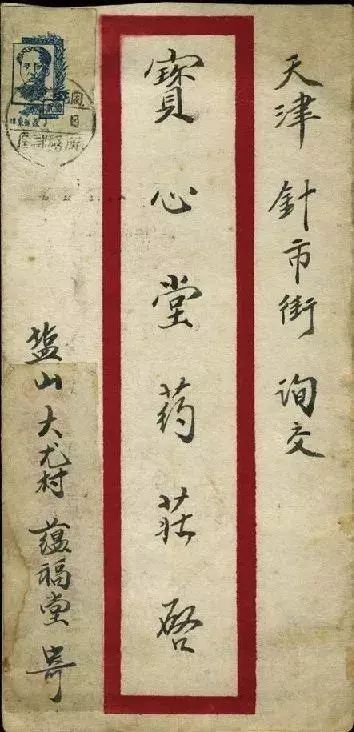 天津針市街询交
寶心堂药莊啓
盐山大尤村蕴福堂寄